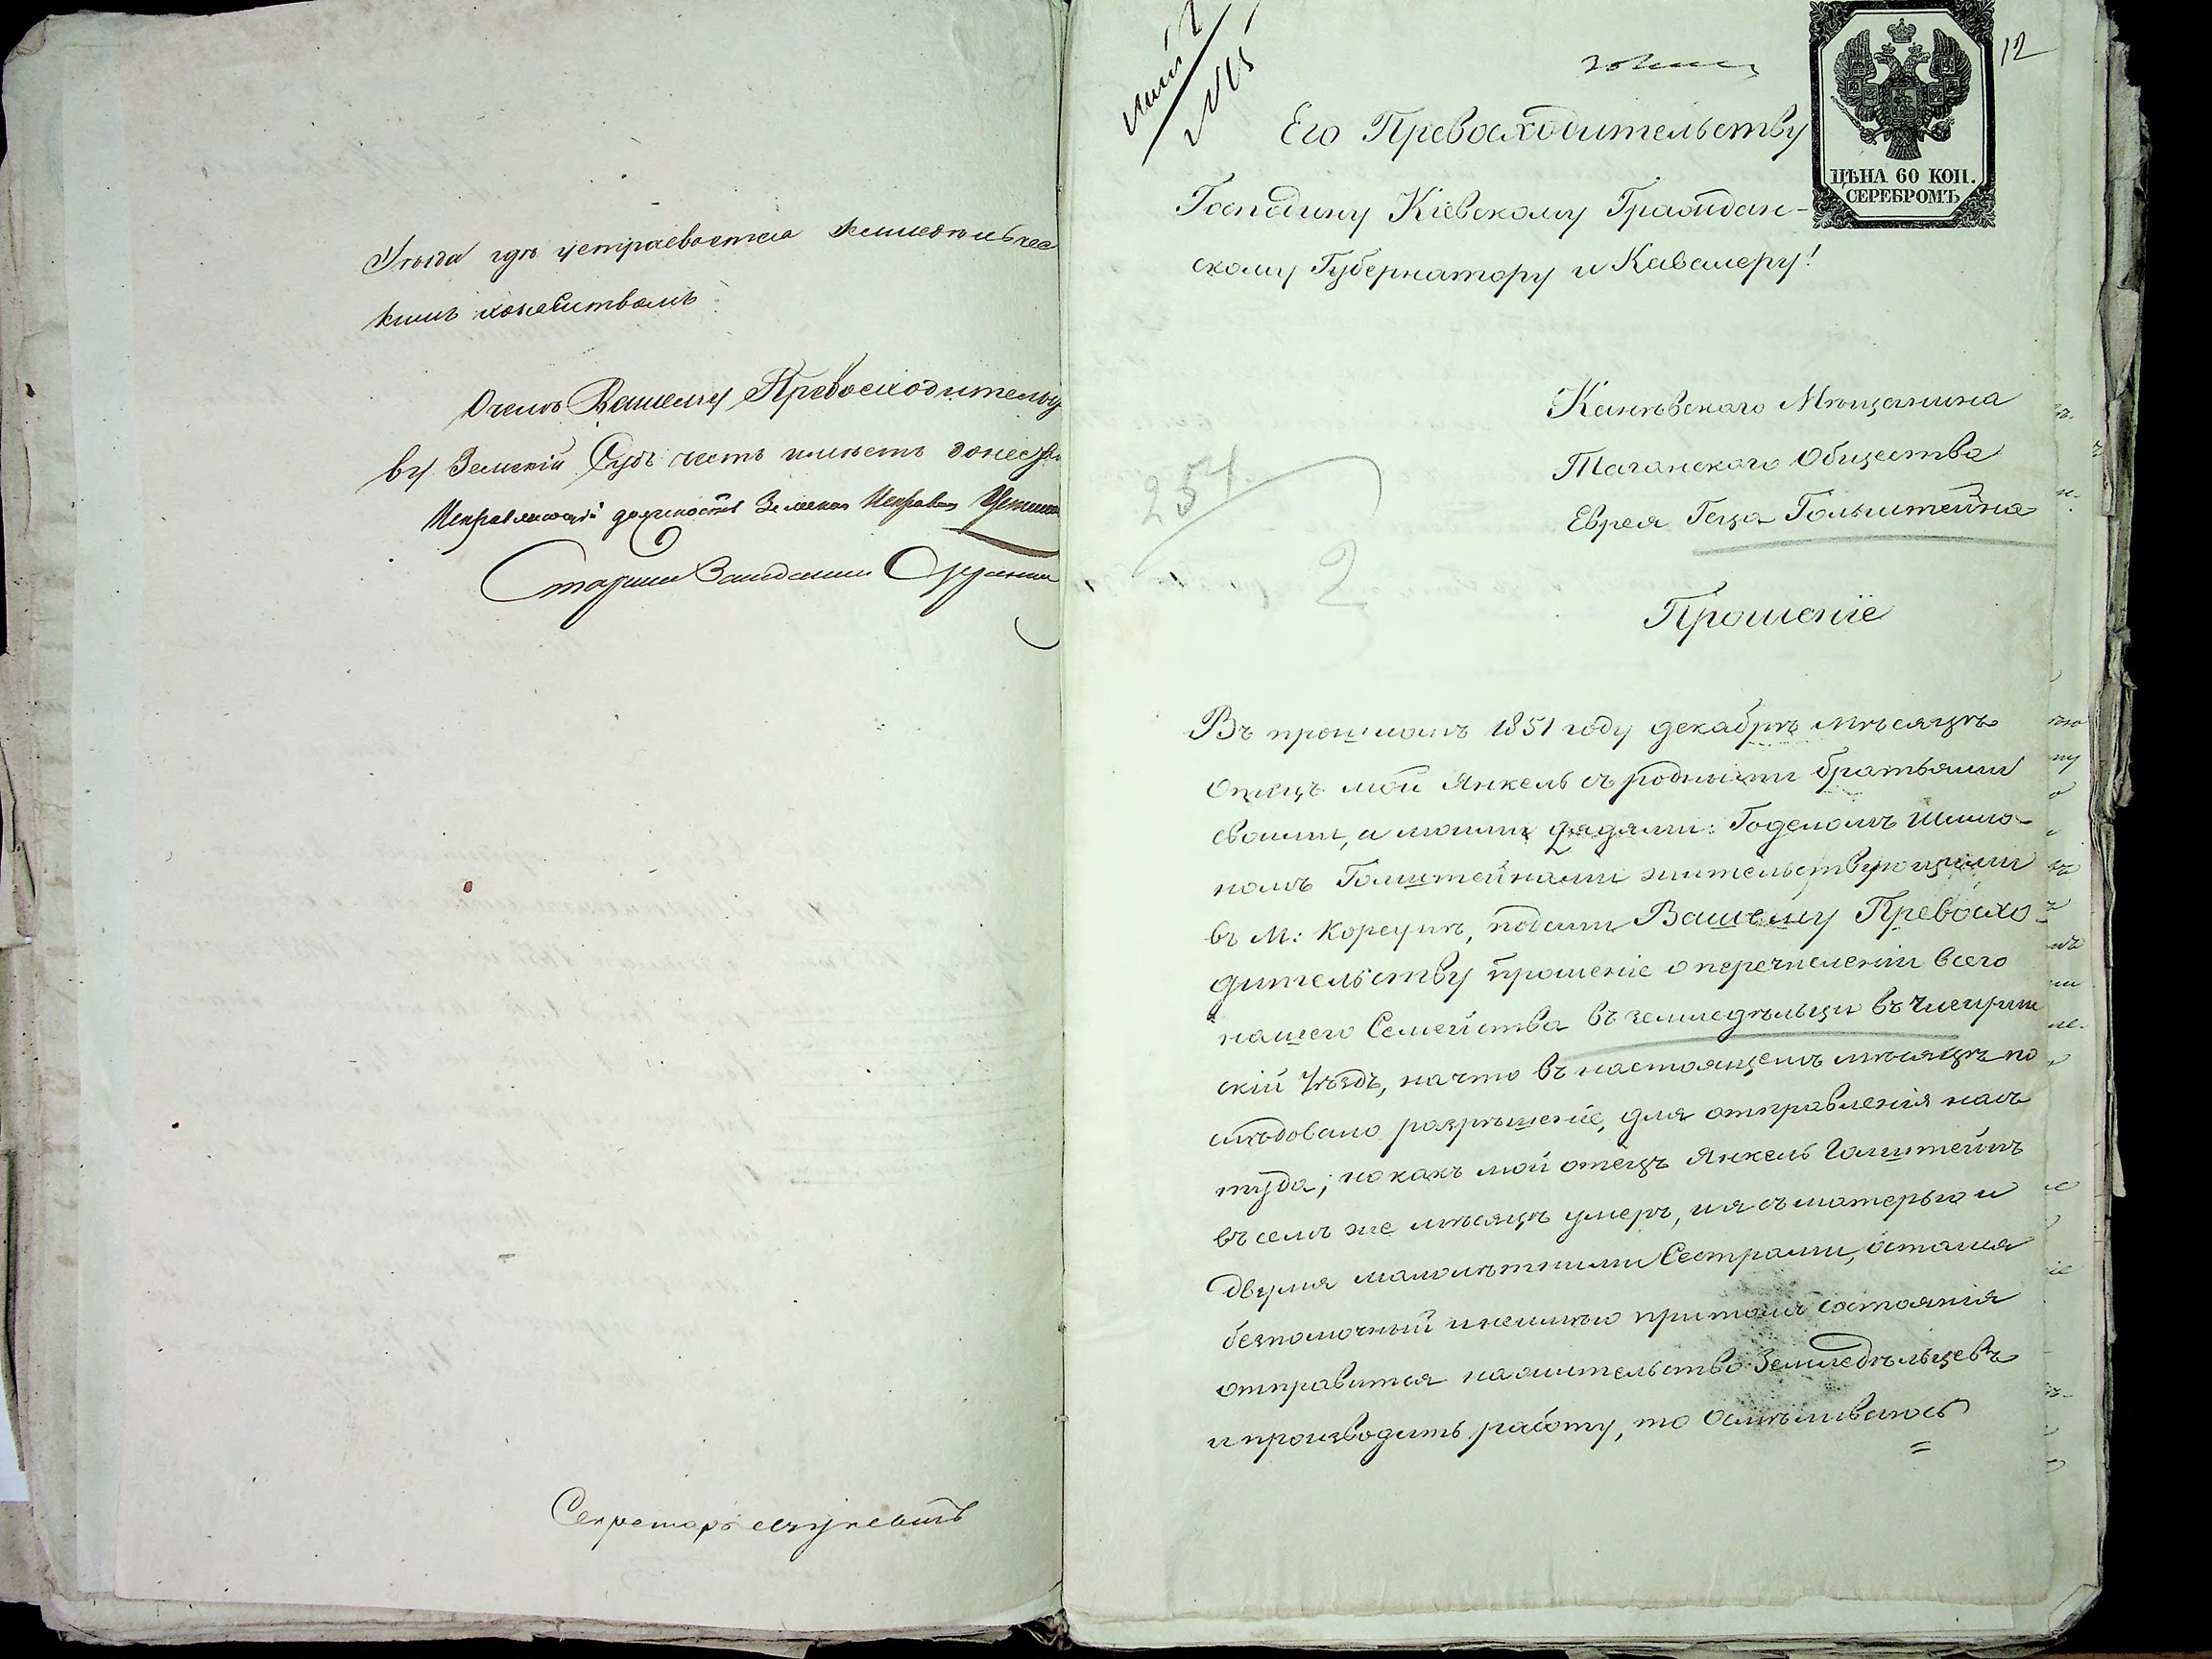 Уѣзда гдѣ устраевается земледѣльчес
кимъ хозяйствомъ.
О чемъ Вашему Превосходительст
ву Земскій Судъ честь имѣетъ донести
Исправляющій должность Земскаго Исправника
Старший Заседатель
Секретарь
12
Его Превосходительству
ЦѢНА 60 КОП.
СЕРЕБРОМЪ
Господину Кіевскому Граждан-
скому Губернатору и Кавалеру!
Каневскаго Мѣщанина
Таганскаго Общества
Еврея Геца Гольштейна
251
2
Прошеніе
Въ прошломъ 1851 году декабрѣ мѣсяцѣ
отецъ мой Янкель съ родными братьями
своими, а моими дядями: Годелемъ Шимо-
номъ Голштейнами жительствующими
въ М: Корсунѣ, подали Вашему Превосхо-
дительству прошеніе о перечисленіи всего
нашего Семейства въ земледѣльцы въ Чигирин
скій Уѣздъ, на что въ настоящемъ мѣсяцѣ по
слѣдовало разрѣшеніе, для отправленія насъ
туда; но какъ мой отецъ Янкель Голштейнъ
въ семъ же мѣсяцѣ умеръ, и я съ матерью и
двумя малолѣтними Сестрами, остался
безпомочный и неимѣю притомъ состоянія
отправится на жительство Земледѣльцевъ
и производить работу, то Осмѣливаюсь